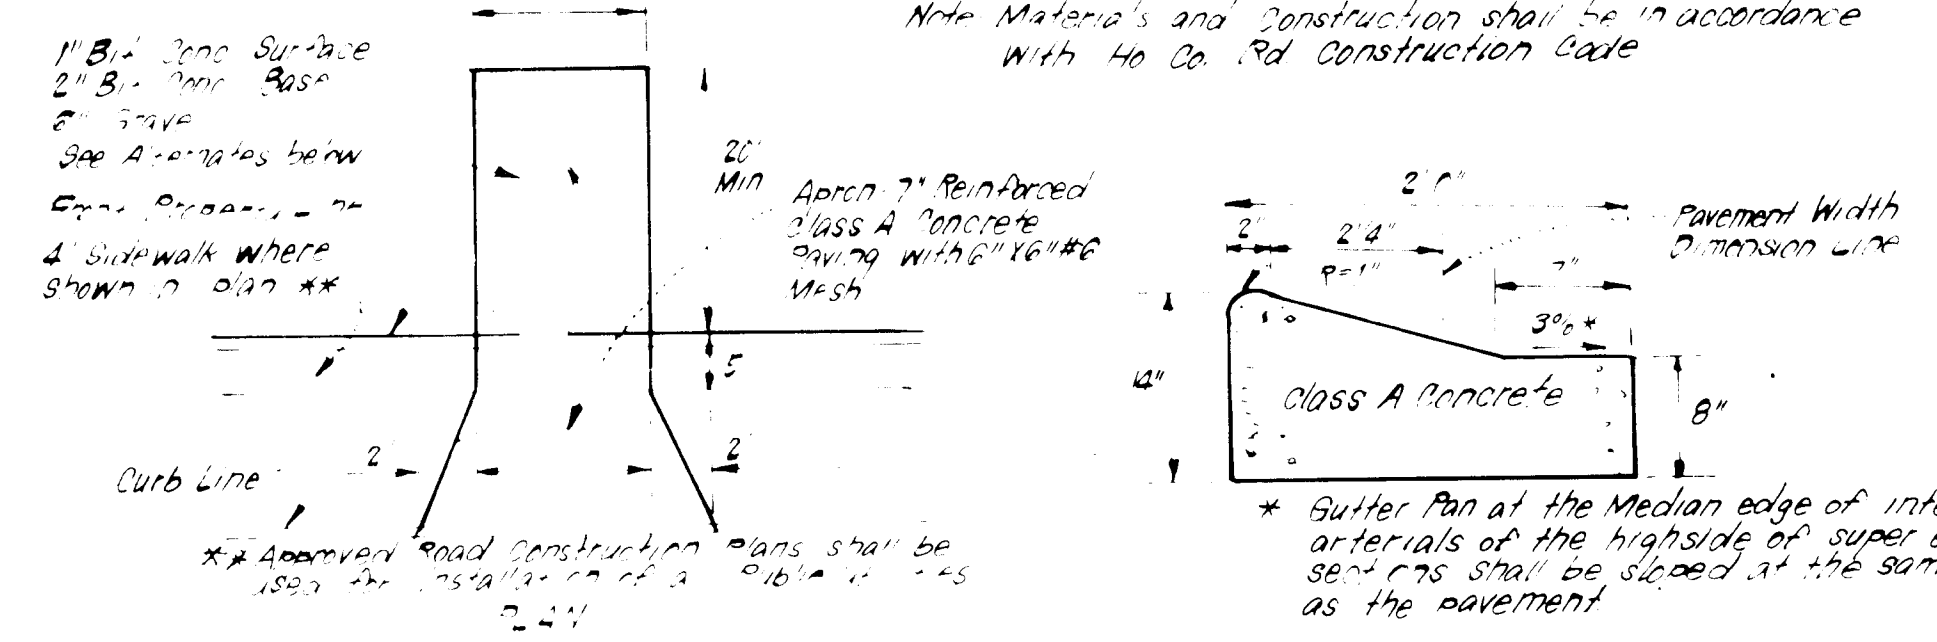 Note Materials and Construction shall be in accordance
With Ho Co. Rd Construction Code
1" Bit Conc Surface
2" Bit Conc Base
See Alternates below
4' Sidewalk where
shown in plan **
20'
Min
Apron 7" Reinforced
Class A Concrete
Paving with 6" X 6" #6
Mesh
5
2
2
Curb Line
** Approved Road Construction Plans shall be
used for installation of
PLAN
2"
Pavement Width
Dimension Line
R=1"
7"
3% *
14"
Class A Concrete
8"
* Gutter Pan at the Median edge of
arterials of the highside of super
sections shall be sloped at the
as the pavement